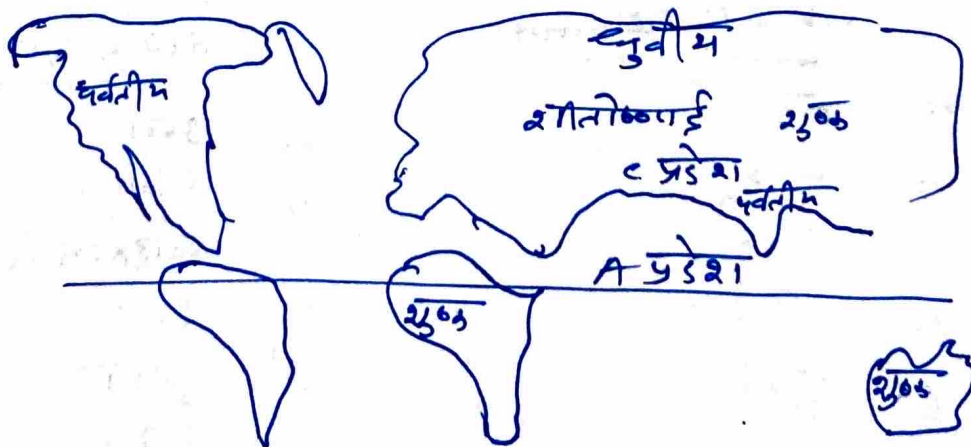 ध्रुवीय
पर्वतीय
शीतोष्णार्द्र शुष्क
C प्रदेश
पर्वतीय
A प्रदेश
शुष्क
शुष्क